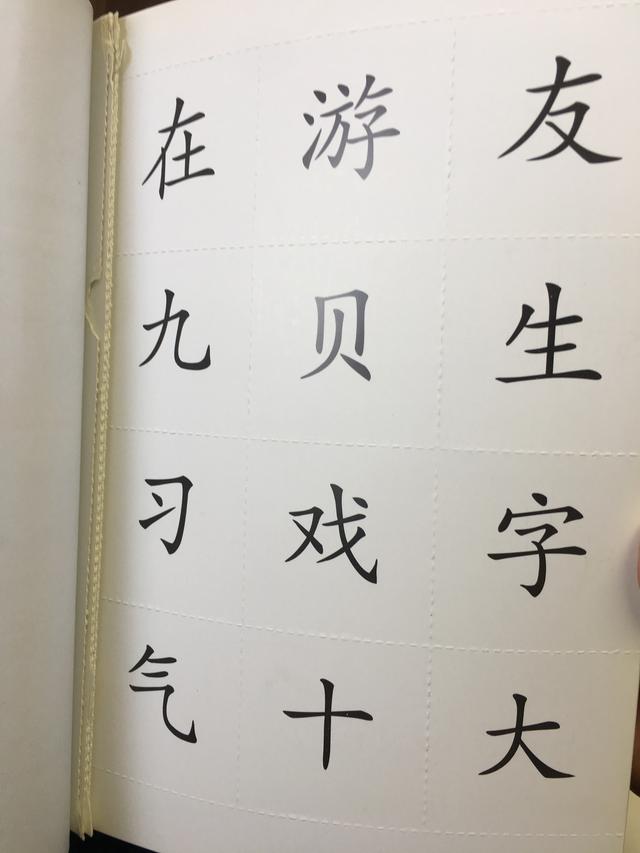 在 游 友
九 贝 生
习 戏 字
气 十 大